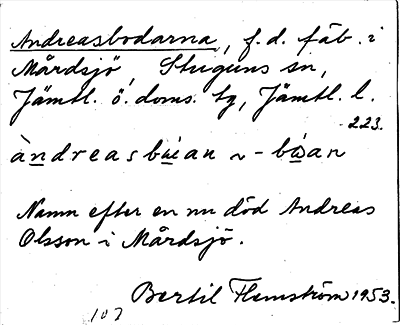 Andreasbodarna, f.d. fäb. i
Mårdsjö, Stuguns sn,
Jämtl. ö. doms. tg, Jämtl. l.
223.
àndreasbùan ~ -bùan
Namn efter en nu död Andreas
Olsson i Mårdsjö.
Bertil Flemström 1953.
107